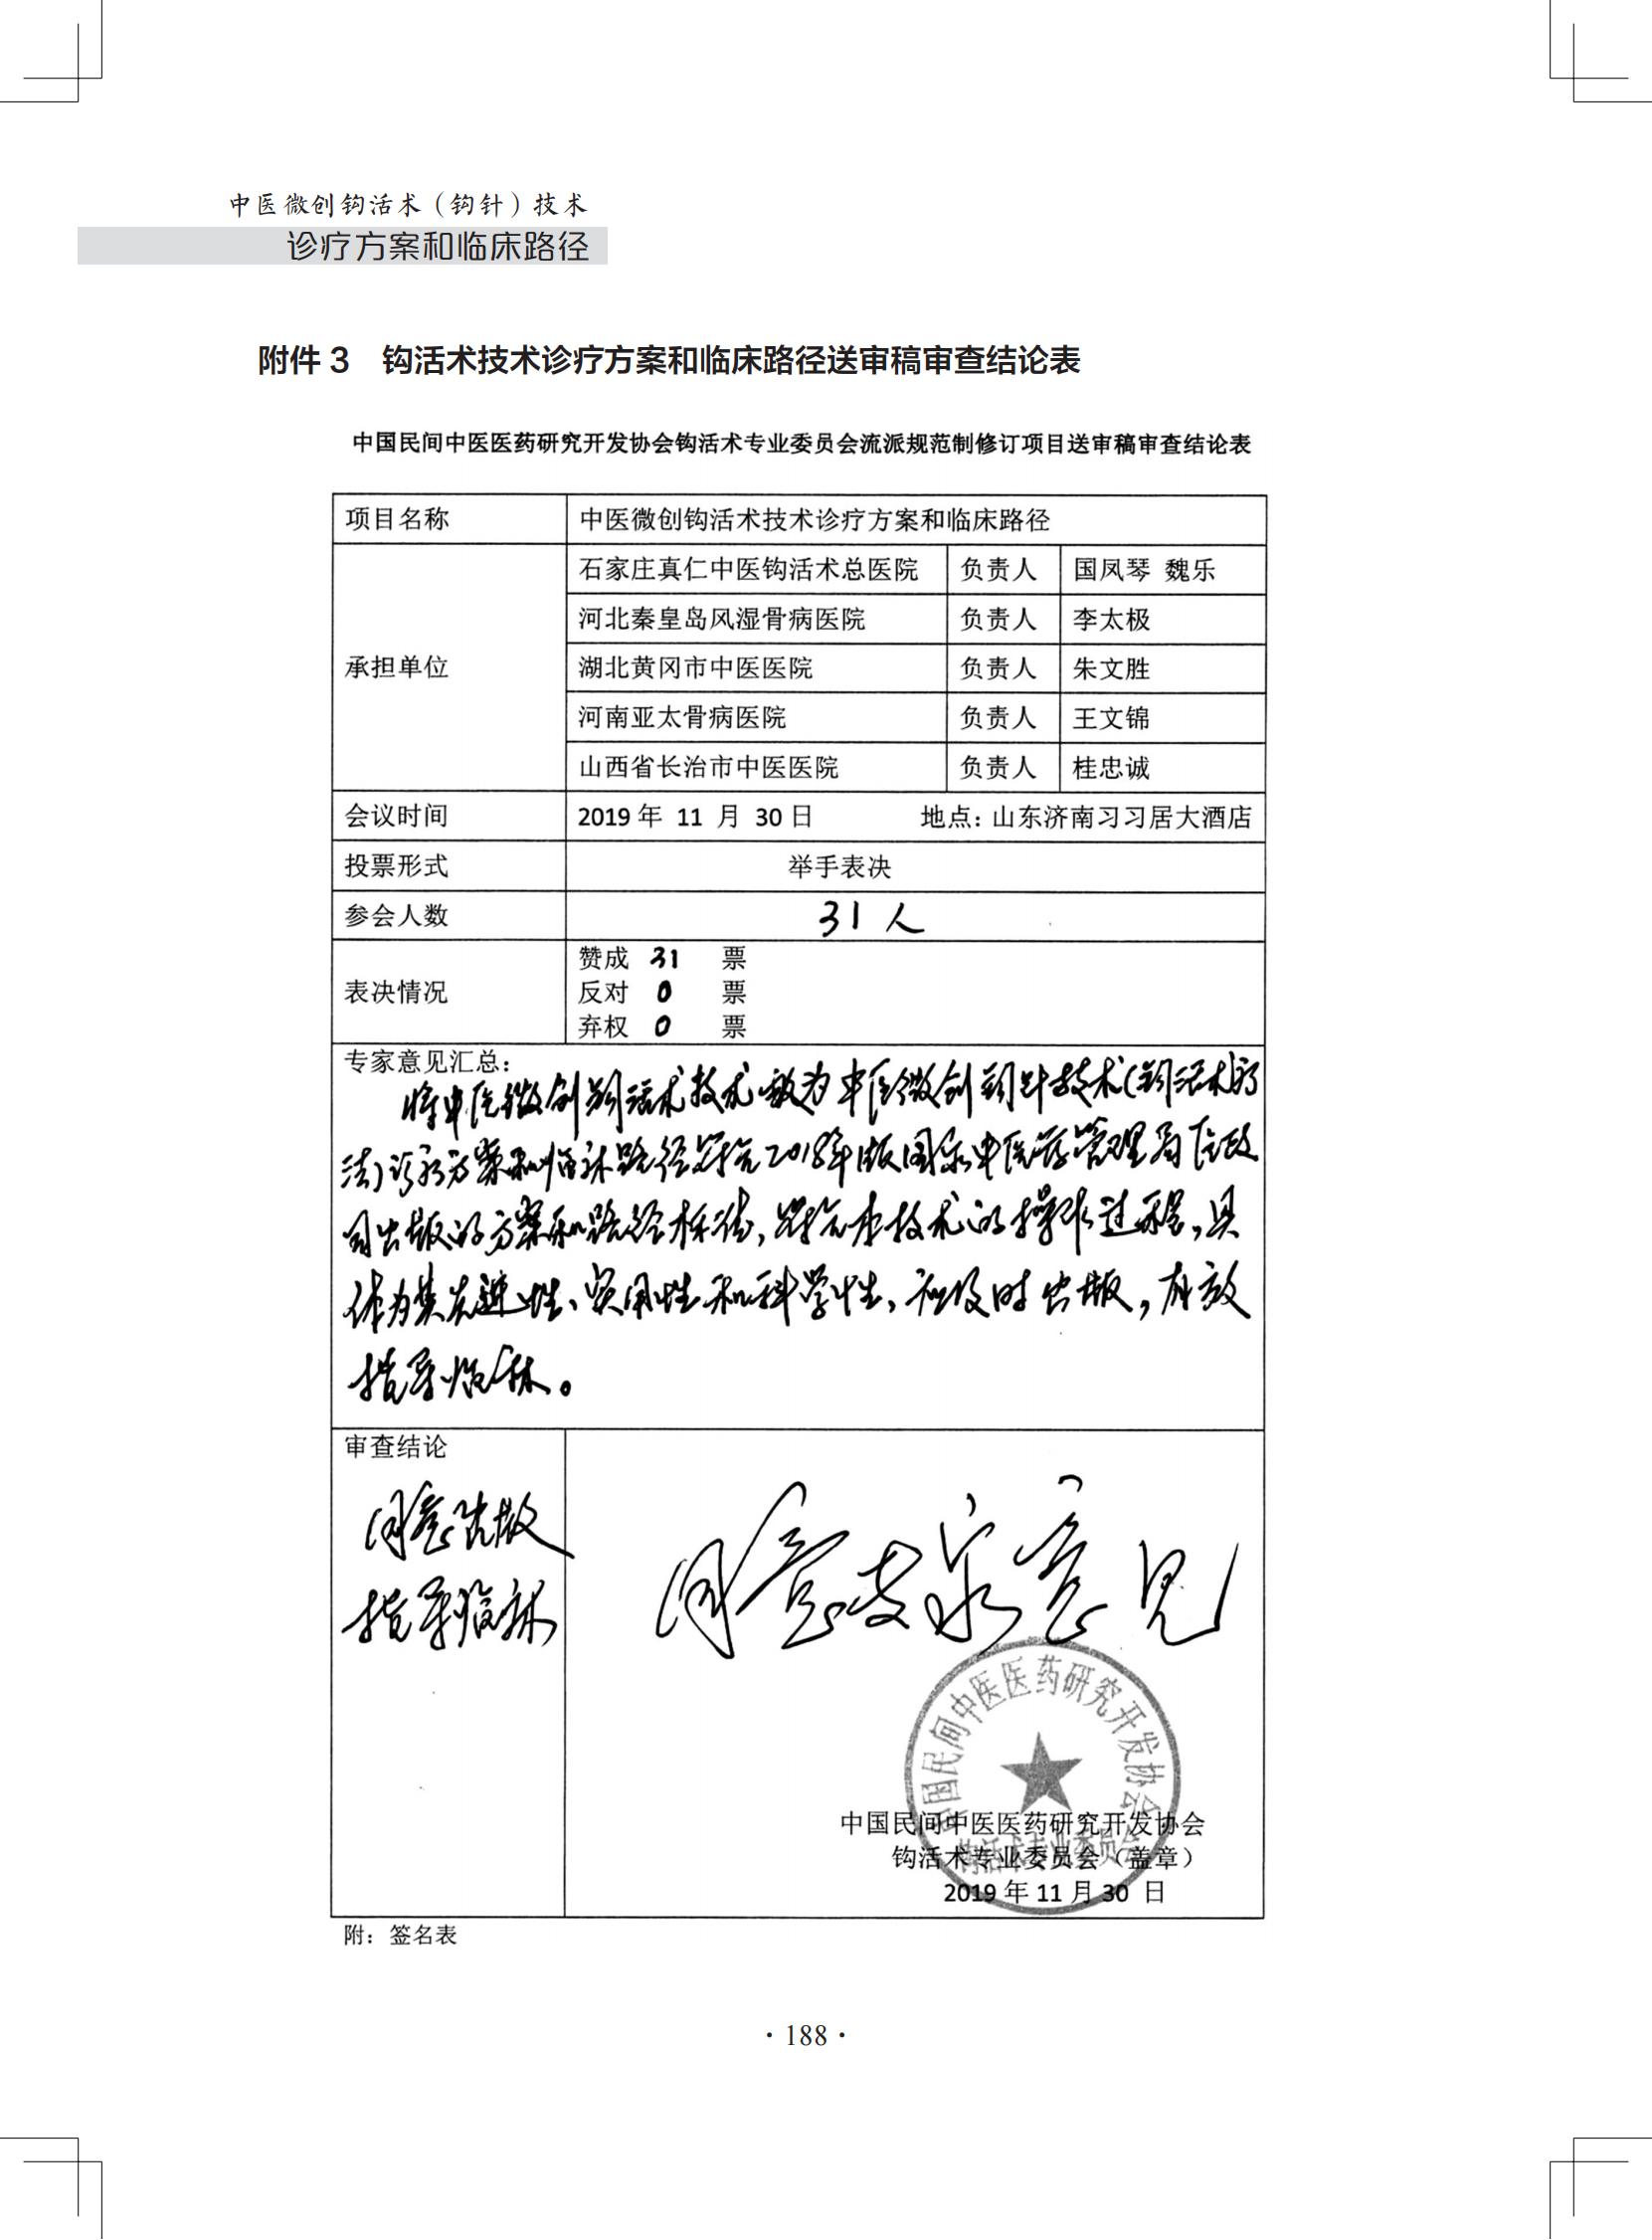 中医微创钩活术（钩针）技术
诊疗方案和临床路径
附件 3　钩活术技术诊疗方案和临床路径送审稿审查结论表
中国民间中医医药研究开发协会钩活术专业委员会流派规范制修订项目送审稿审查结论表
项目名称 中医微创钩活术技术诊疗方案和临床路径
承担单位
石家庄真仁中医钩活术总医院 负责人 国凤琴 魏乐
河北秦皇岛风湿骨病医院 负责人 李太极
湖北黄冈市中医医院 负责人 朱文胜
河南亚太骨病医院 负责人 王文锦
山西省长治市中医医院 负责人 桂忠诚
会议时间 2019 年 11 月 30 日 地点：山东济南习习居大酒店
投票形式 举手表决
参会人数 31 人
表决情况
赞成 31 票
反对 0 票
弃权 0 票
专家意见汇总：
将中医微创钩活术技术改为中医微创钩针技术（钩活术疗
法）诊疗方案和临床路径符合2018年版国家中医药管理局医政
司出版的方案和路径标准，符合本技术的操作过程，具
体为其先进性、实用性和科学性，应及时出版，有效
指导临床。
审查结论
同意出版
指导临床
同意专家意见
中国民间中医医药研究开发协会
钩活术专业委员会
中国民间中医医药研究开发协会
钩活术专业委员会（盖章）
2019 年 11 月 30 日
附：签名表
·188·